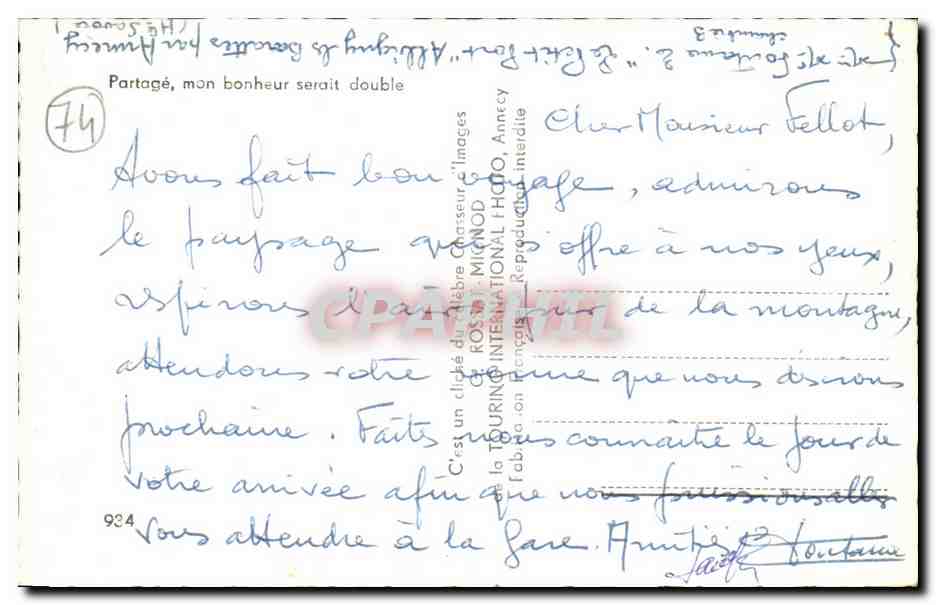 (Hte Savoie)
Fontaine 2. "Le Petit Port" Albigny les Barattes par Annecy
chambre 3
Partagé, mon bonheur serait double
74
Cher Monsieur Fellot,
Avons fait bon voyage, admirons
le paysage qui s'offre à nos yeux,
respirons l'air pur de la montagne,
attendons votre venue que nous désirons
prochaine. Faites nous connaître le jour de
votre arrivée afin que nous puissions aller
vous attendre à la gare. Amitiés
Fontaine
934
C'est un cliché du célèbre Chasseur d'Images
G. ROSSAT-MIGNOD
de la TOURING INTERNATIONAL PHOTO, Annecy
Fabrication Française - Reproduction interdite
CPARPHIL